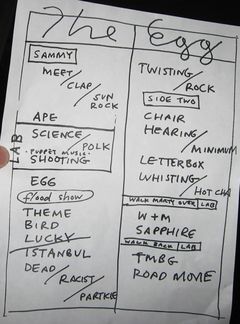 The Egg
SAMMY
MEET/
CLAP/
SUN
ROCK
APE
LAB
SCIENCE/
POLK
·PUPPET MUSIC·
SHOOTING
EGG
flood show
THEME
BIRD
LUCKY
ISTANBUL
DEAD/
RACIST/
PARTICLE
TWISTING/
ROCK
SIDE TWO
CHAIR
HEARING/
MINIMUM
LETTERBOX
WHISTING/
HOT CHA
WALK MARTY OVER | LAB
W+M
SAPPHIRE
WALK BACK | LAB
TMBG
ROAD MOVIE